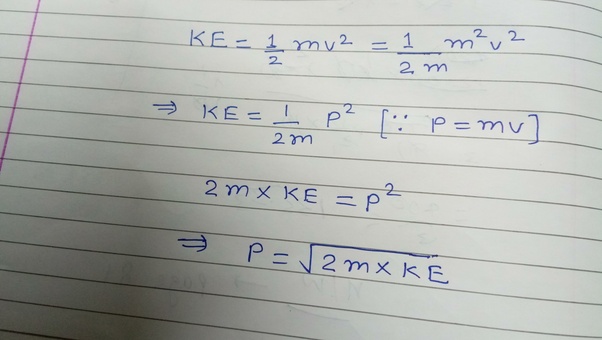 KE = 1/2 mv² = 1/2m m²v²
⇒ KE = 1/2m P² [∵ P = mv]
2m × KE = P²
⇒ P = √2m × KE